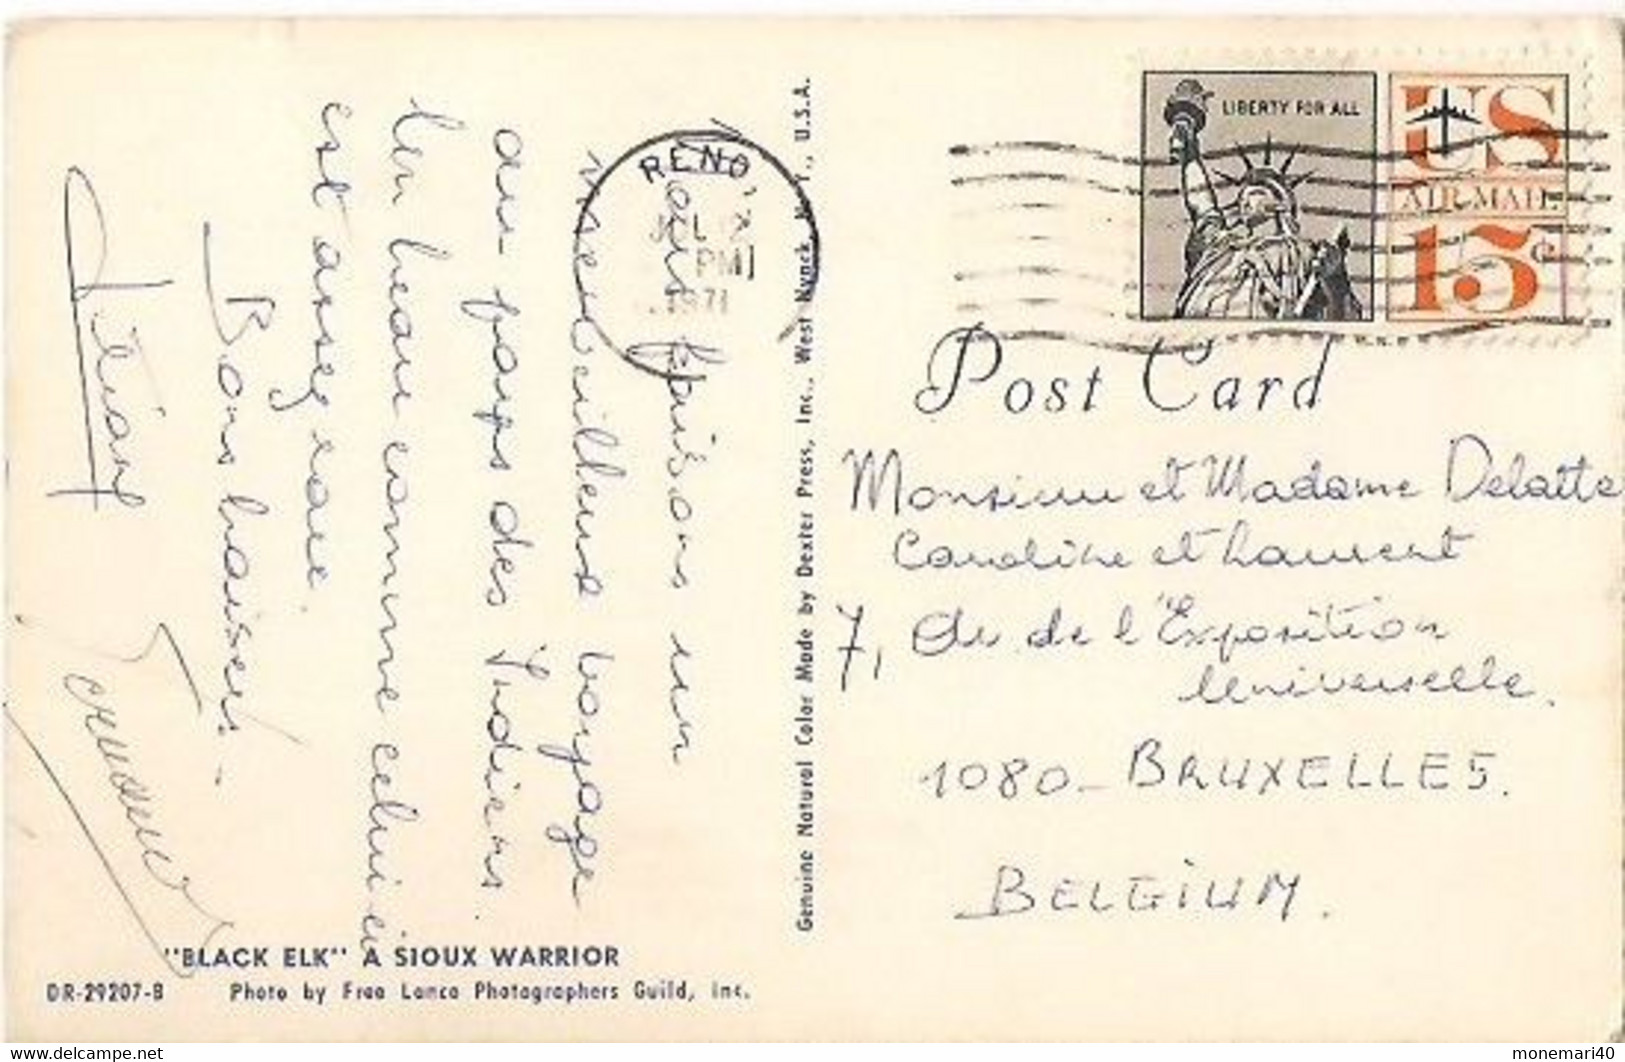 LIBERTY FOR ALL
US
AIR MAIL
15c
RENO,
PM
1971
Post Card
faisons un
merveilleux voyage
au pays des Indiens.
Un beau comme celui ci
est assez rare.
Bons baisers.
Monsieur et Madame Delatte
Caroline et Laurent
7, Av de l'Exposition
Universelle.
1080 - BRUXELLES.
BELGIUM.
Genuine Natural Color Made by Dexter Press, Inc., West Nyack, N. Y., U.S.A.
"BLACK ELK" A SIOUX WARRIOR
DR-29207-B Photo by Free Lance Photographers Guild, Inc.
monemari40